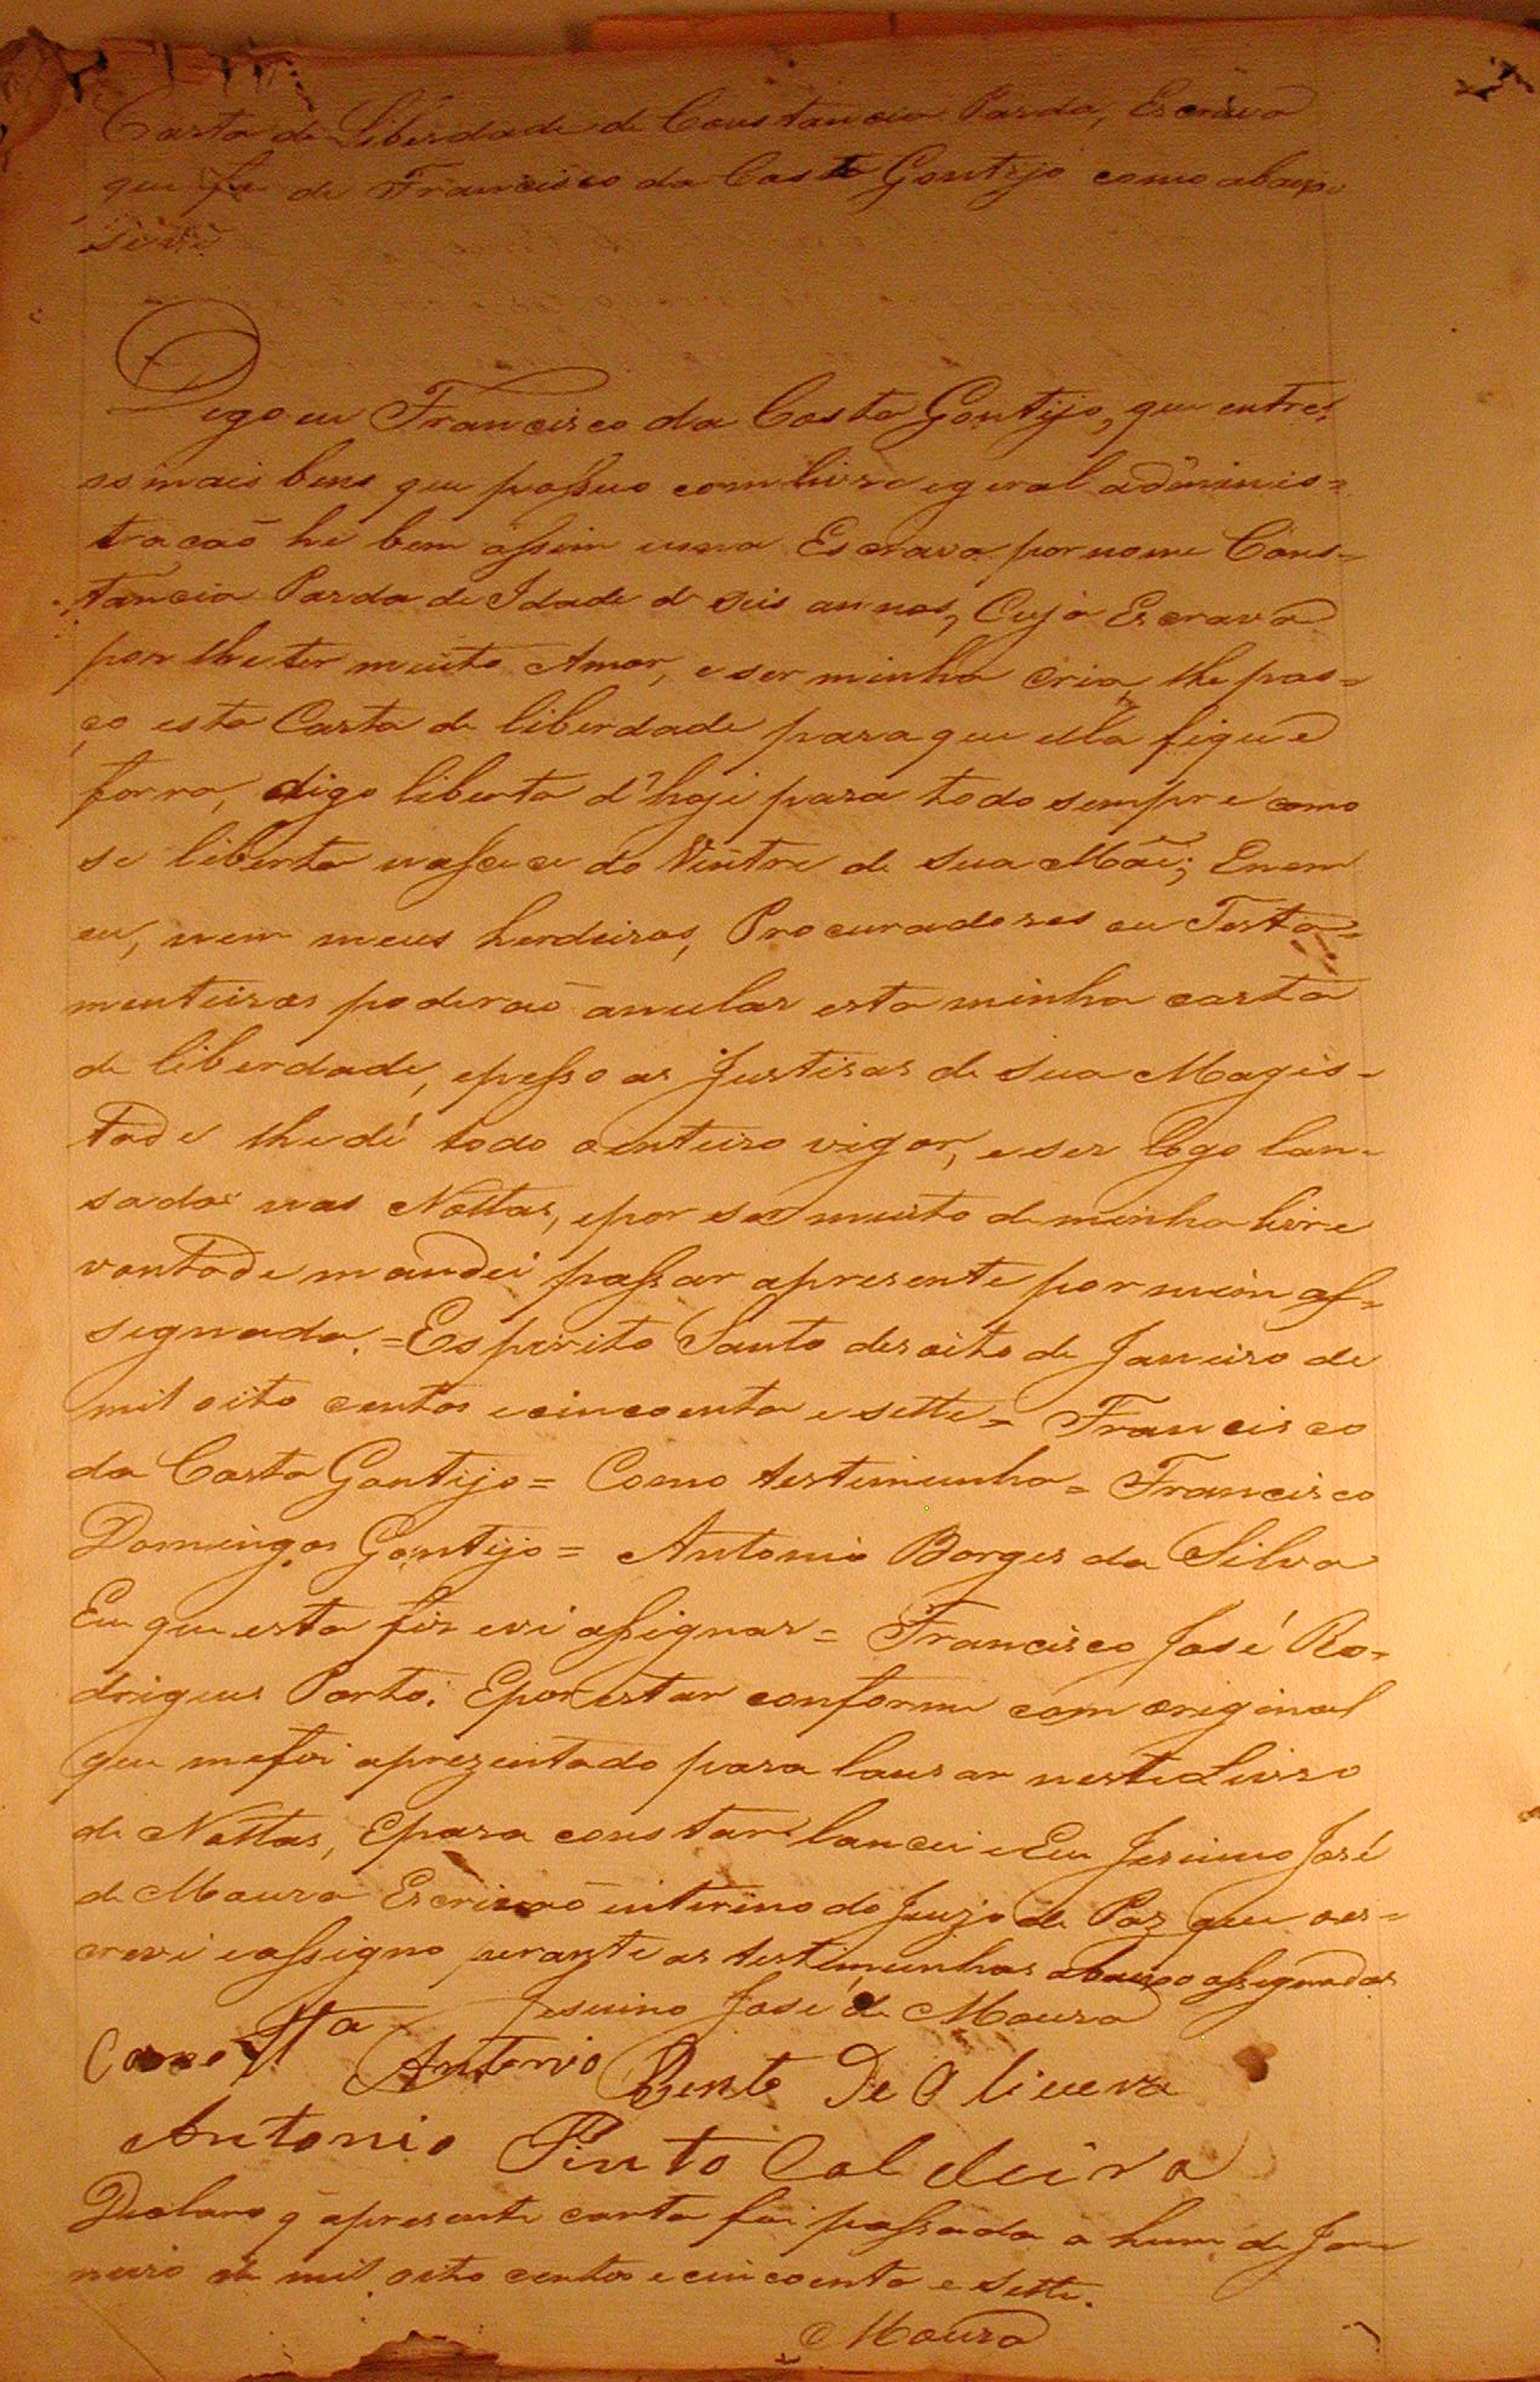 Carta de Liberdade de Constancia Parda, Escrava
que foi de Francisco da Costa Gontijo como abaixo
se vê
Digo eu Francisco da Costa Gontijo, que entre
os mais bens que possuo com livre e geral adminis=
tracaõ he bem assim uma Escrava por nome Cons=
tancia Parda de Idade de seis annos, Cuja Escrava
por lhe ter muito Amor, e ser minha cria, lhe pas=
ço esta Carta de liberdade para que ella fique
forra, digo liberta d'hoje para todo sempre como
se liberta nascece do Ventre de sua Mãi; E nem
eu, nem meus herdeiros, Procuradores ou Testa=
menteiros poderaõ anular esta minha carta
de liberdade, e pesso as Justisas de sua Magis=
tade lhe dé todo o inteiro vigor, e ser logo lan=
sada nas Nottas, e por ser muito de minha livre
vontade mandei passar a presente por mim as=
signada. = Espirito Santo desoito de Janeiro de
mil oito centos e cincoenta e sette = Francisco
da Costa Gontijo = Como testimunha = Francisco
Domingos Gontijo = Antonio Borges da Silva
Eu que esta fiz e vi assignar = Francisco José Ro=
drigues Porto. E por estar conforme com original
que me foi aprezentado para lansar neste Livro
de Nottas, E para constar lancei e Eu Jesuino José
de Moura Escrivaõ interino do Juizo de Paz que o es=
crevi e assigno perante as testimunhas abaixo assignadas
Jesuino José de Moura
Como tta Antonio Bento De Oliveira
Antonio Pinto Caldeira
Declaro q̃ a presente carta foi passada a hum de Ja
neiro de mil oito centos e cincoenta e sette.
Moura